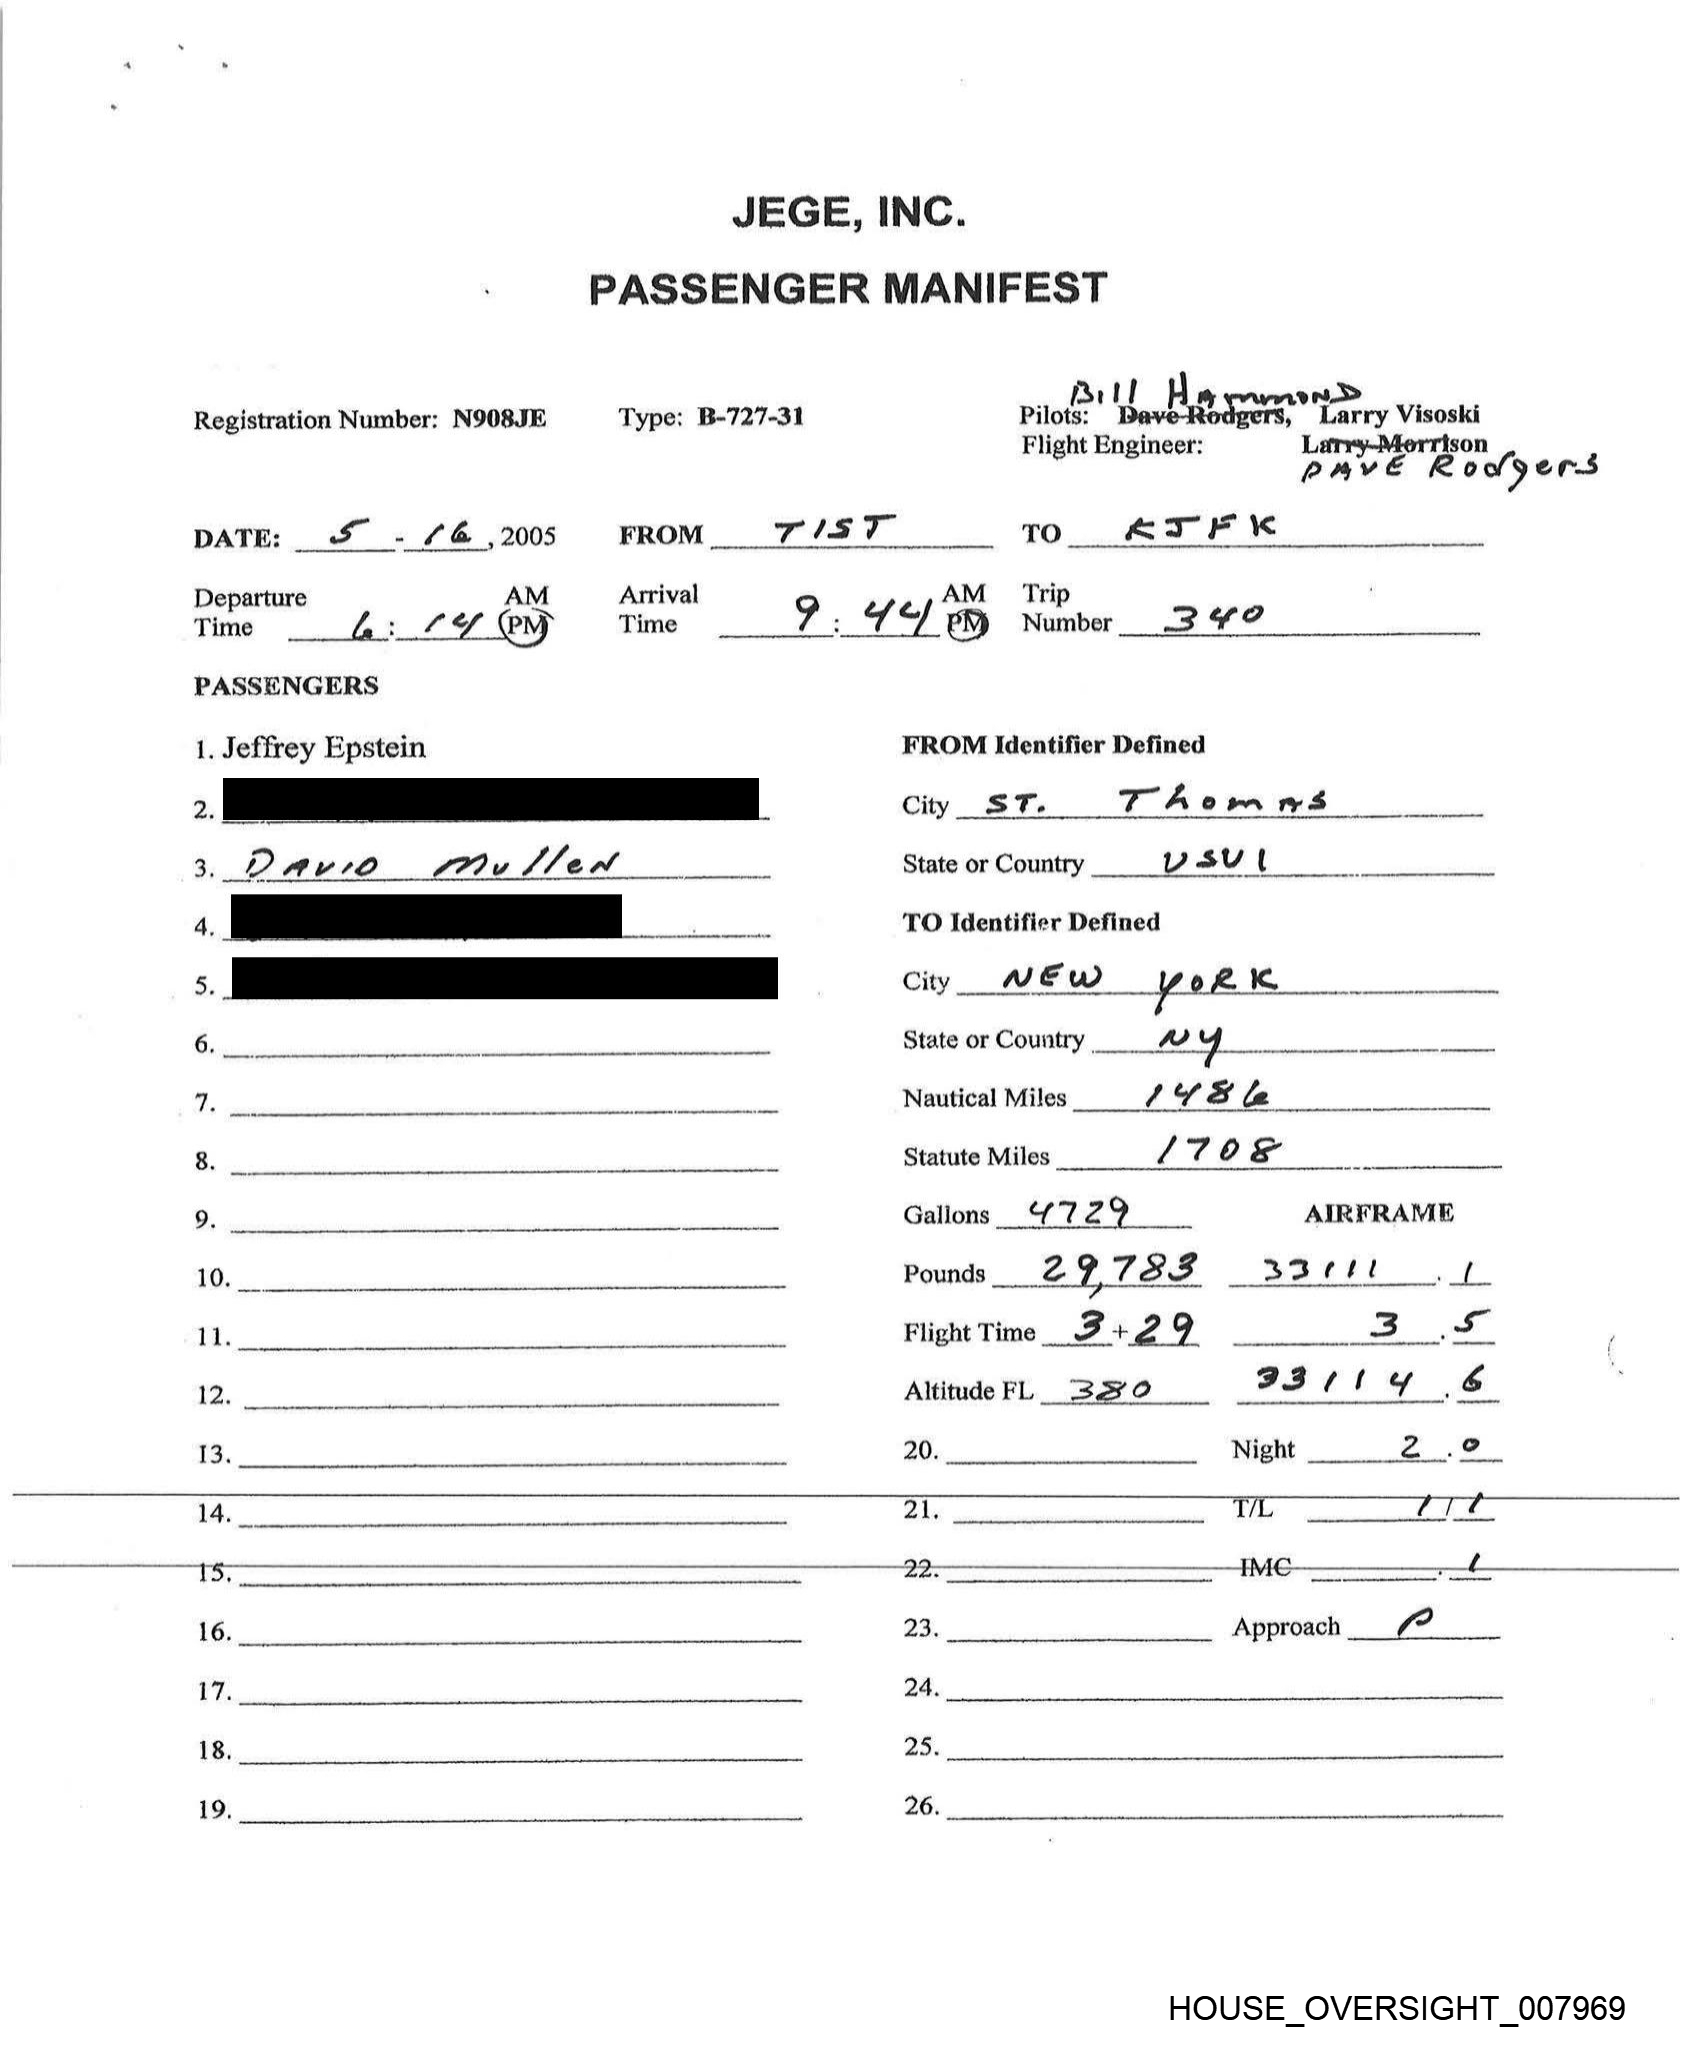 JEGE, INC.
PASSENGER MANIFEST
Bill Hammond
Registration Number: N908JE Type: B-727-31 Pilots: Dave Rodgers, Larry Visoski
Flight Engineer: Larry Morrison
DAVE Rodgers
DATE: 5 - 16, 2005 FROM TIST TO KJFK
Departure AM Arrival AM Trip
Time 6:14 PM Time 9:44 PM Number 340
PASSENGERS
1. Jeffrey Epstein
2.
3. DAVID Mullen
4.
5.
6.
7.
8.
9.
10.
11.
12.
13.
14.
15.
16.
17.
18.
19.
FROM Identifier Defined
City ST. Thomas
State or Country USVI
TO Identifier Defined
City NEW YORK
State or Country NY
Nautical Miles 1486
Statute Miles 1708
Gallons 4729 AIRFRAME
Pounds 29,783 33111.1
Flight Time 3+29 3.5
Altitude FL 380 33114.6
20. Night 2.0
21. T/L 1/1
22. IMC .1
23. Approach P
24.
25.
26.
HOUSE_OVERSIGHT_007969